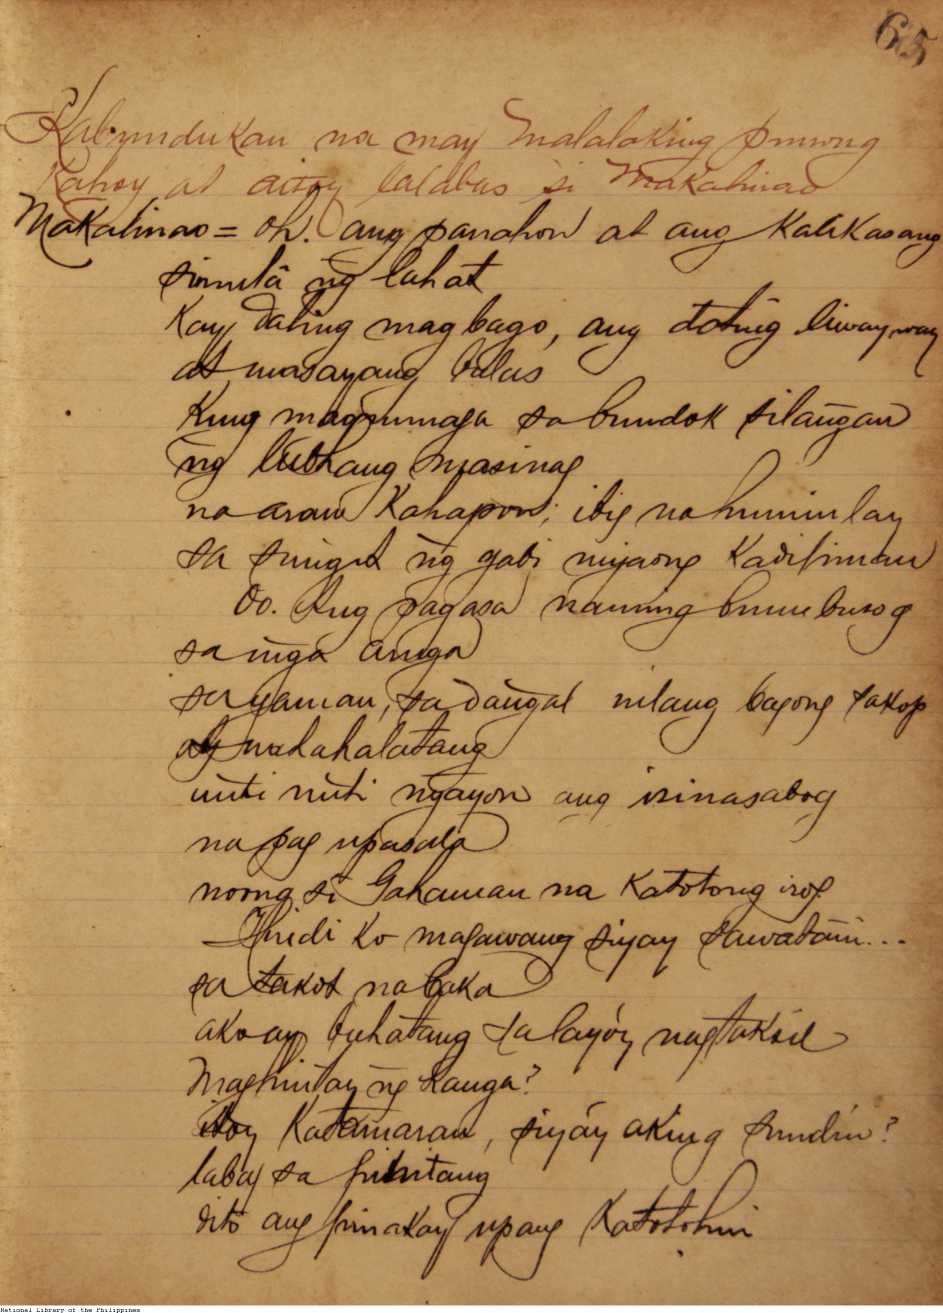 65
Kabundukan na may malalaking punong
Kahoy at ditoy lalabas si Makalinao
Makalinao = Oh. ang panahon at ang Kalikasang
simula ng lahat
Kay daling magbago, ang dating liwayway
at masayang balas
Kung magumaga sa bundok silangan
ng lubhang masinag
na araw Kahapon; ibig na huminlay
sa singit ng gabi niyaong Kadiliman
Oo. Ang pagasa naming bumubusog
sa mga aniga
sa yaman, sa dangal nilang bagong sakop
ay nahahalatang
unti unti ngayon ang isinasabog
na pag upasala
noong si Gahaman na Katotong irog
Hindi ko magawang siyay sawatain...
sa takot na baka
ako ay buhatang talagay nagtaksil
Maghintay ng kanga?
itoy Katamaran, siyay aking sundin?
labag sa
dito ang pinakay upang Katotohin
National Library of the Philippines